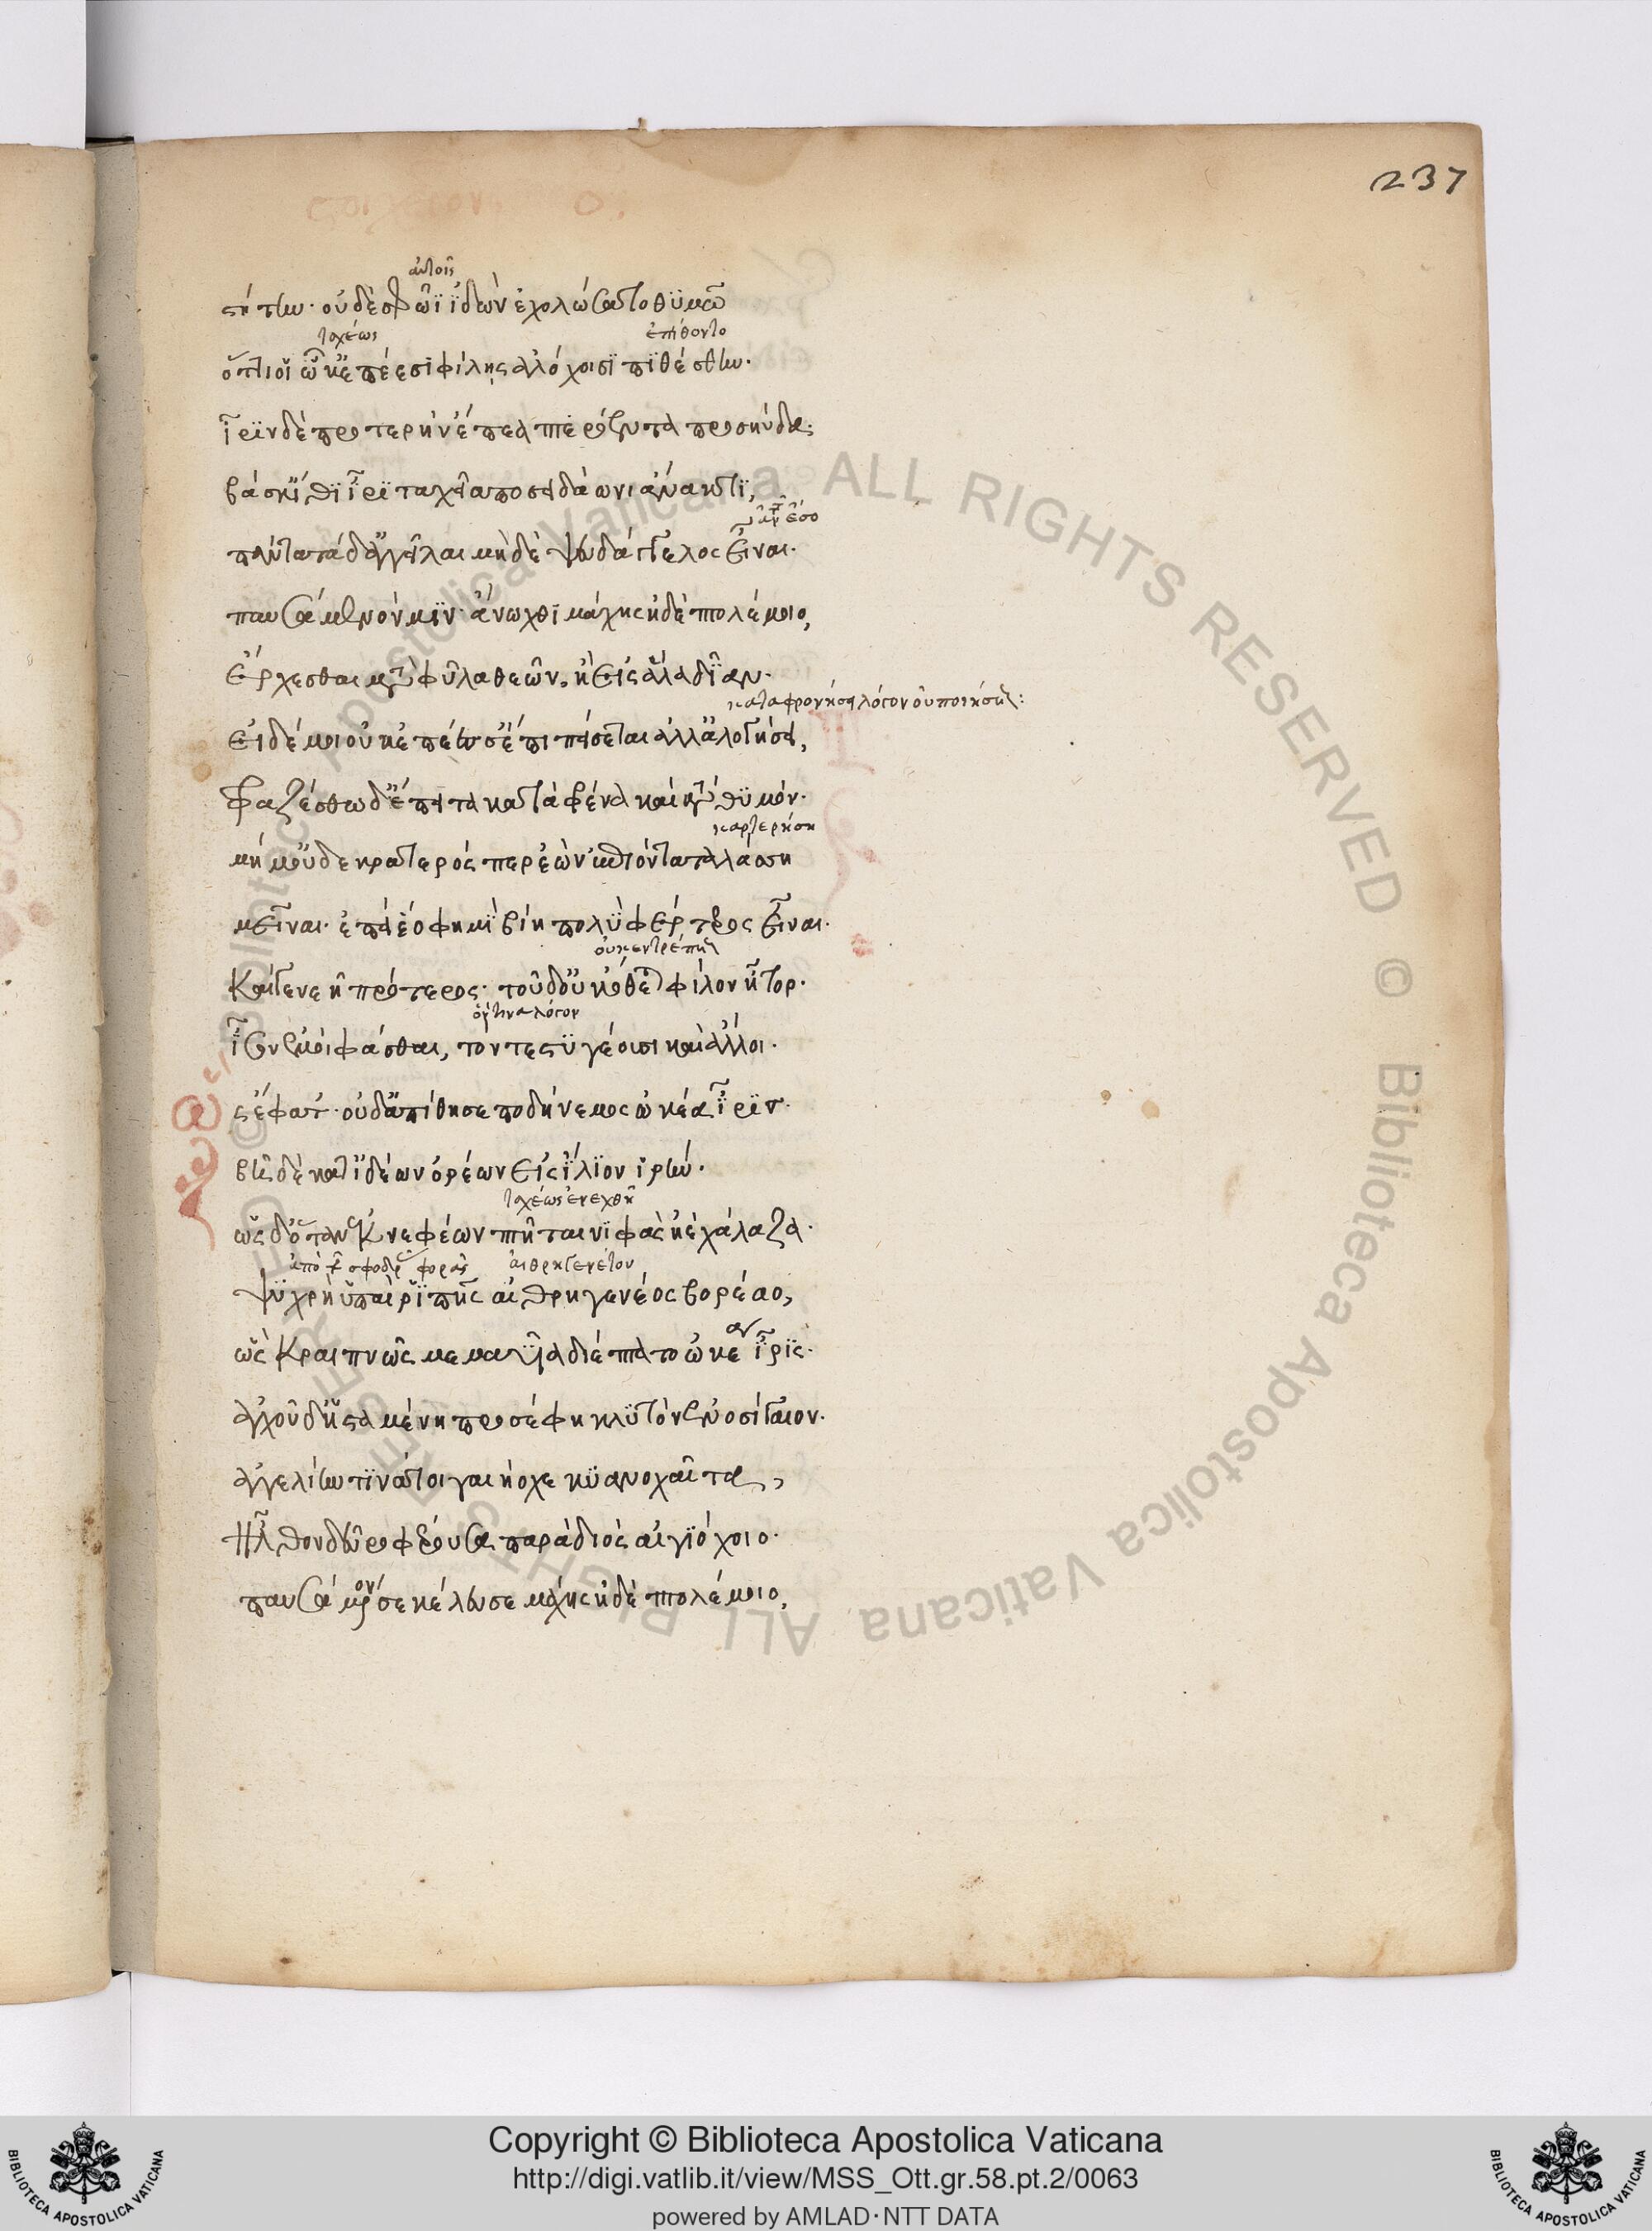 237
αὐτοῖς
στήτην· οὐδὲ σφῶϊ ἰδὼν ἐχολώσατο θϋμῶ
ταχέως ἐπίθοντο
ὅττι οἷ ὦκ' ἐπέεσϊ φίλης ἀλόχοισϊ πϊθέσθην·
ἶρϊν δὲ προτέρην ἔπεα πτερόεντα προσηύδα·
βάσκ' ἴθϊ ἶρϊ ταχεῖα ποσειδάωνι ἄνακτϊ,
πάντα τάδ' ἀγγεῖλαι μὴ δὲ ψευδάγγελος εἶναι·
παυσάμενόν μϊν· ἄνωχθϊ μάχης ἠδὲ πολέμοιο,
ἔρχεσθαι μετὰ φῦλα θεῶν, ἢ εἰς ἅλα δῖαν·
καταφρονήσει λόγον οὐ ποιήσει:
εἰ δέ μοι οὐκ ἐπέεσσ' ἐπιπείσεται ἀλλ' ἀλογήσει,
φραζέσθω δ' ἔπειτα κατὰ φρένα καὶ κατὰ θϋμόν·
καρτερήση
μή μ' οὐδὲ κρατερός περ ἐὼν ἐπιόντα ταλάσση
μεῖναι· ἐπεὶ ἕο φημὶ βίη πολὺ φέρτερος εἶναι·
οὐκ ἐντρέπει
καὶ γενεῆ πρότερος· τοῦ δ' οὐκ ὄθεται φίλον ἦτορ·
ὅντινα λόγον
ἶσον ἐμοὶ φάσθαι, τόν τε στϋγέουσι καὶ ἄλλοι·
ὣς ἔφατ'· οὐδ' ἀπίθησε ποδήνεμος ὠκέα ἶρϊς·
βῆ δὲ κατ' ἰδέων ὀρέων εἰς ἴλϊον ἱρήν·
ταχέως ἐνεχθῆ
ὡς δ' ὅταν ἐκ νεφέων πτῆται νϊφὰς ἠὲ χάλαζα·
ἀπὸ τῆς σφοδρᾶς φορᾶς αἰθρηγενέτου
ψϋχρὴ ὑπαὶ ῥϊπῆς αἰθρηγενέος βορέαο,
ὣς κραιπνῶς μεμαυῖα διέπτατο ὠκέα ἶρϊς·
ἀγχοῦ δ' ἱσταμένη προσέφη κλϋτὸν ἐννοσίγαιον·
ἀγγελίην τϊνά τοι γαιήοχε κϋανοχαῖτα,
ἦλθον δεῦρο φέρουσα παρὰ διὸς αἰγϊόχοιο·
παυσάμενόν σε κέλευσε μάχης ἠδὲ πολέμοιο,
Copyright © Biblioteca Apostolica Vaticana
http://digi.vatlib.it/view/MSS_Ott.gr.58.pt.2/0063
powered by AMLAD·NTT DATA